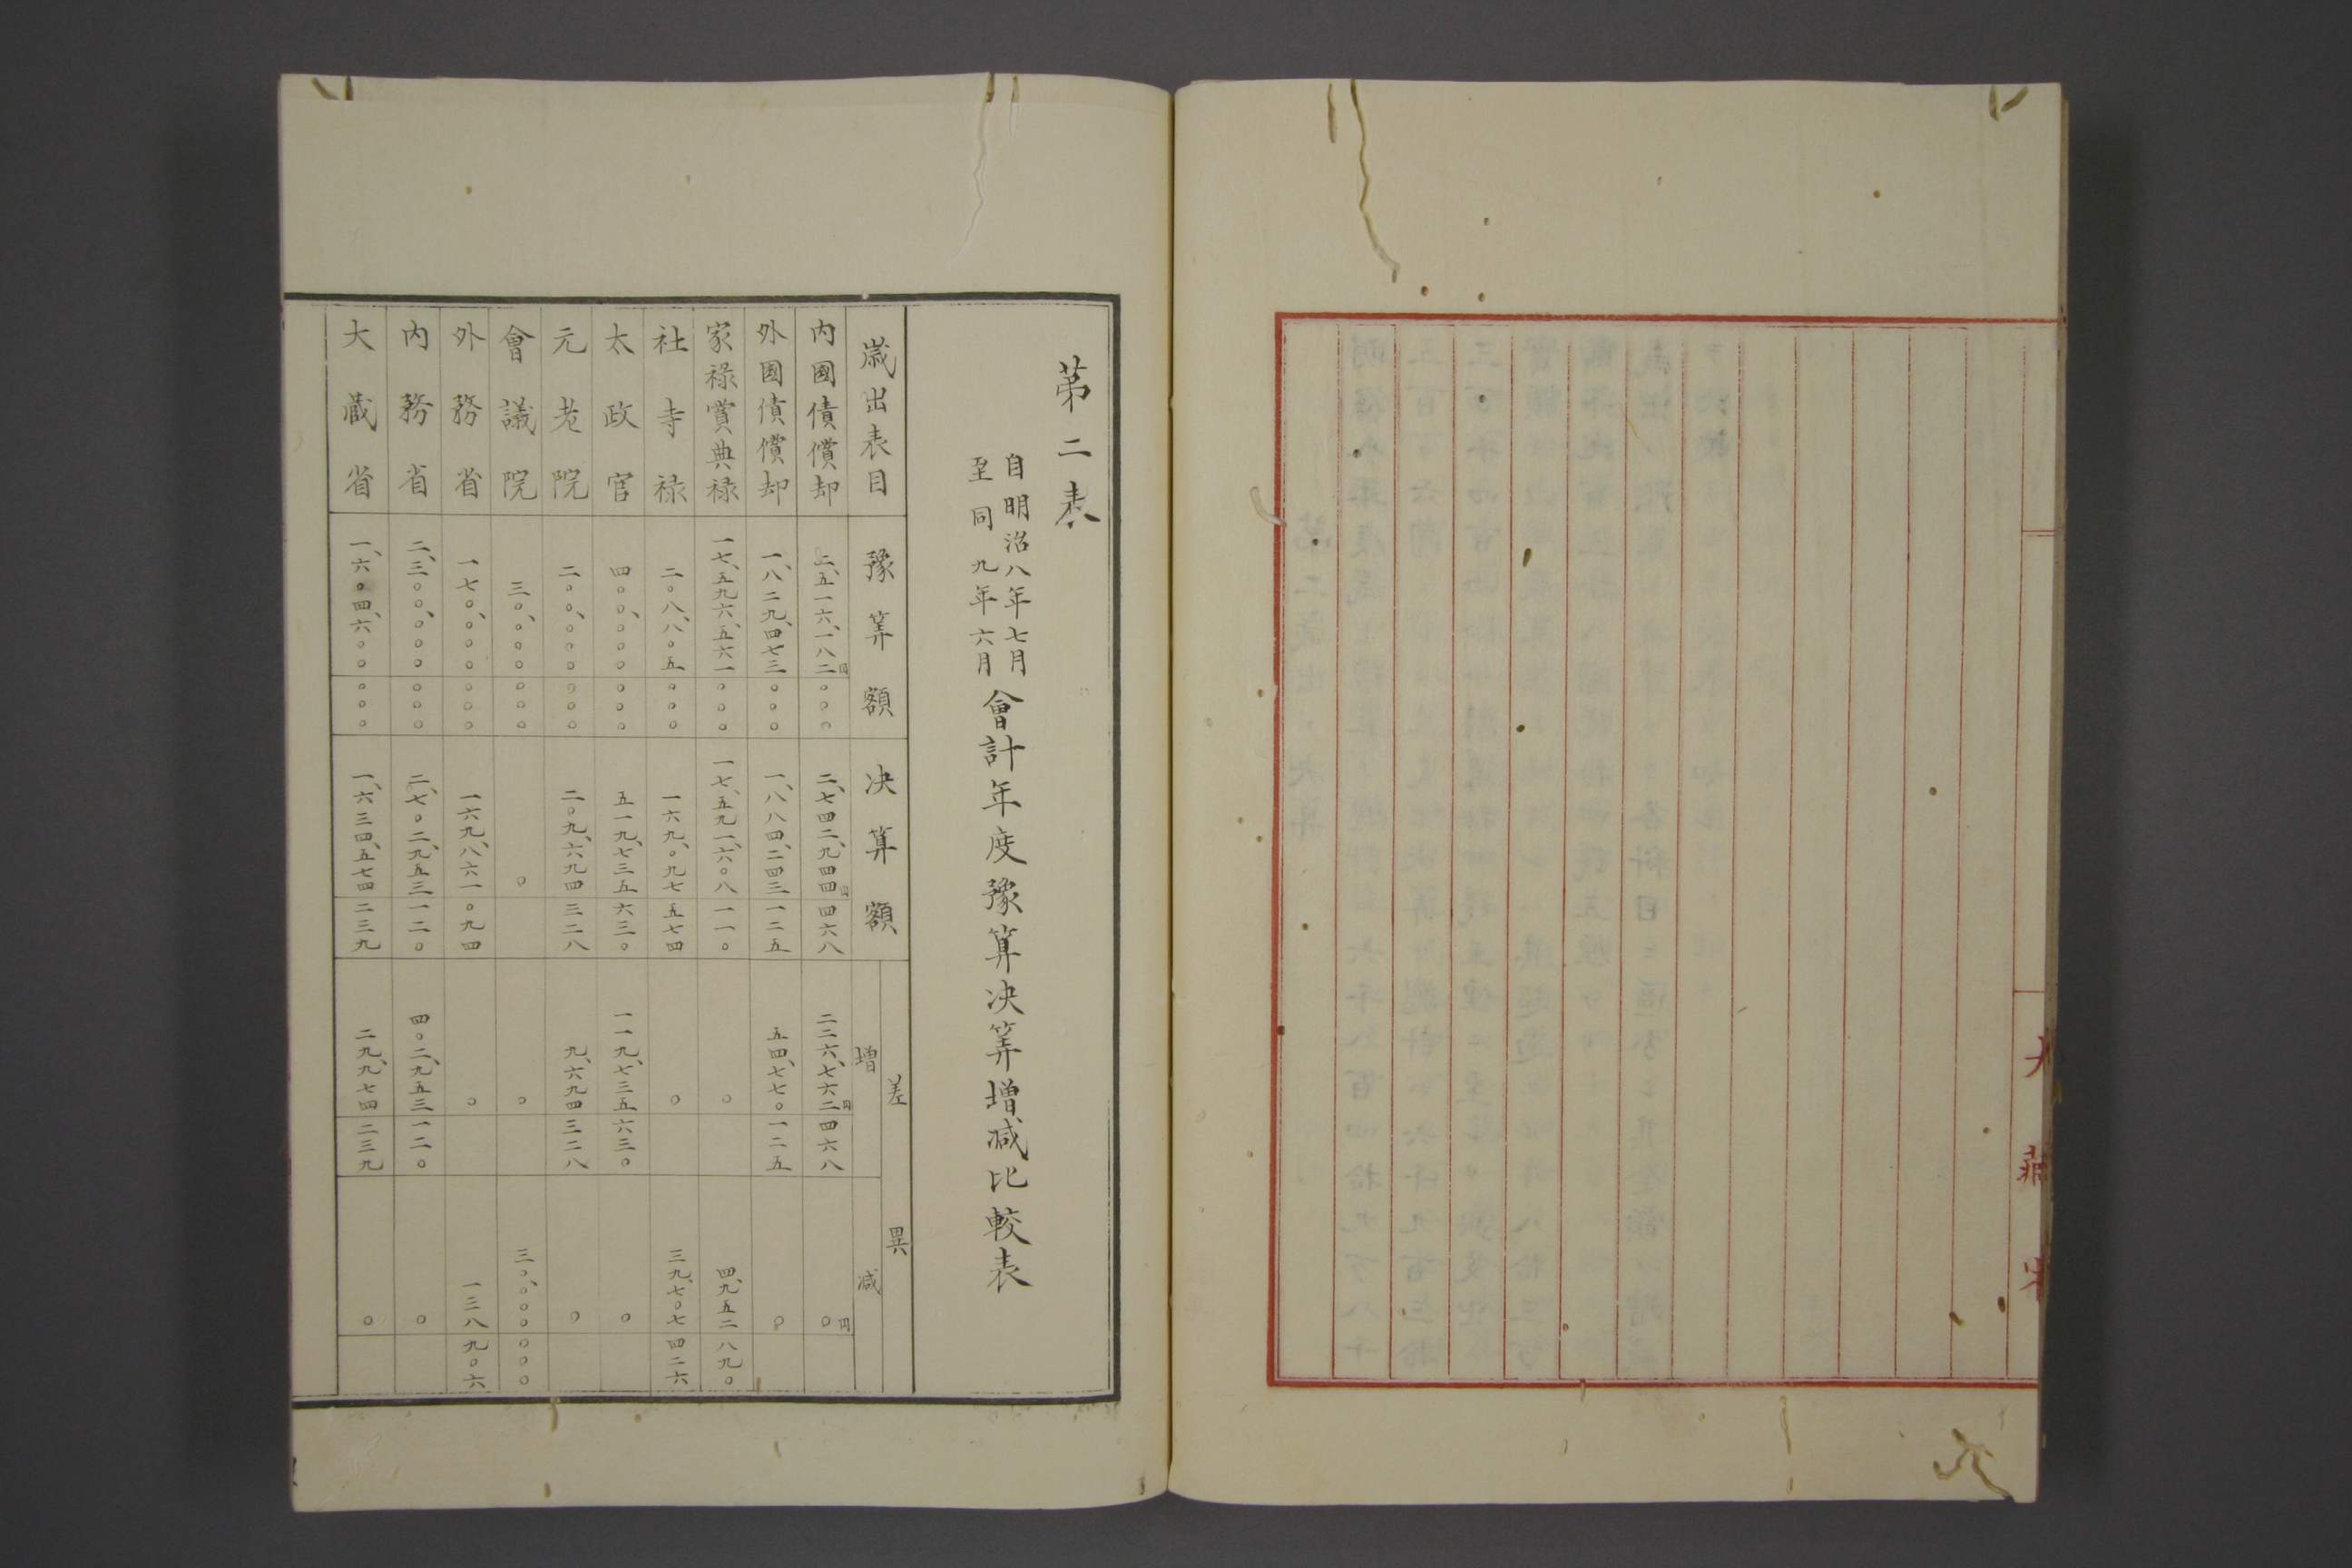 大藏省
第二表
自明治八年七月
至同九年六月
會計年度豫算决算増減比較表
歳出表目 豫算額 决算額 差異 増 減
内國債償却 二、五一六、一八二円 〇〇〇 二、七四二、九四四円 四六八 二二六、七六二円 四六八 〇円
外國債償却 一、八二九、四七三 〇〇〇 一、八八四、二四三 一二五 五四、七七〇 一二五 〇
家禄賞典禄 一七、五九六、五六一 〇〇〇 一七、五九一、六〇八 一一〇 〇 四、九五二 八九〇
社寺禄 二〇八、八〇五 〇〇〇 一六九、〇九七 五七四 〇 三九、七〇七 四二六
太政官 四〇〇、〇〇〇 〇〇〇 五一九、七三五 六三〇 一一九、七三五 六三〇 〇
元老院 二〇〇、〇〇〇 〇〇〇 二〇九、六九四 三二八 九、六九四 三二八 〇
會議院 三〇、〇〇〇 〇〇〇 〇 〇 三〇、〇〇〇 〇〇〇
外務省 一七〇、〇〇〇 〇〇〇 一六九、八六一 〇九四 〇 一三八 九〇六
内務省 二、三〇〇、〇〇〇 〇〇〇 二、七〇二、九五三 一二〇 四〇二、九五三 一二〇 〇
大蔵省 一、六〇四、六〇〇 〇〇〇 一、六三四、五七四 二三九 二九、九七四 二三九 〇